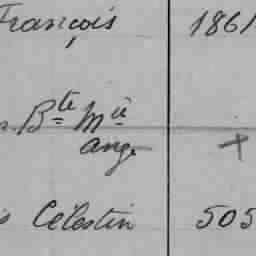 François 1861
Bte Mie
ange +
Célestin 505